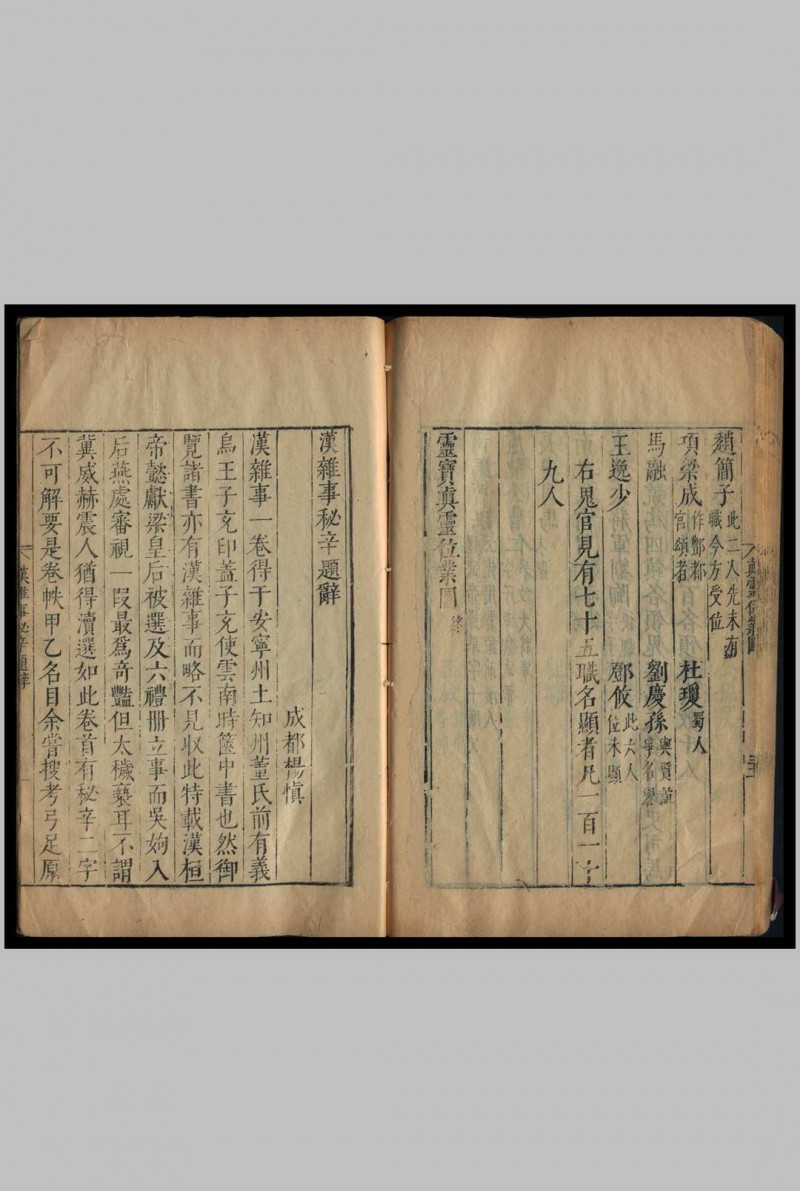 趙簡子此二人先未有
職今方受位
項梁成作酆都
宮頌者
杜瓊蜀人
馬融
劉慶孫
王逸少
鄧攸此六人
位未顯
右鬼官見有七十五職名顯者凡一百一十
九人
靈寶真靈位業圖終
漢雜事秘辛題辭
成都楊慎
漢雜事一卷得于安寧州土知州董氏前有義
烏王子充印蓋子充使雲南時篋中書也然御
覽諸書亦有漢雜事而略不見收此特載漢桓
帝懿獻梁皇后被選及六禮冊立事而吳姁入
后燕處審視一段最為奇艷但太穢褻耳不謂
冀威赫震人猶得瀆選如此卷首有秘辛二字
不可解要是卷帙甲乙名目余嘗搜考弓足原
漢雜事秘辛題辭